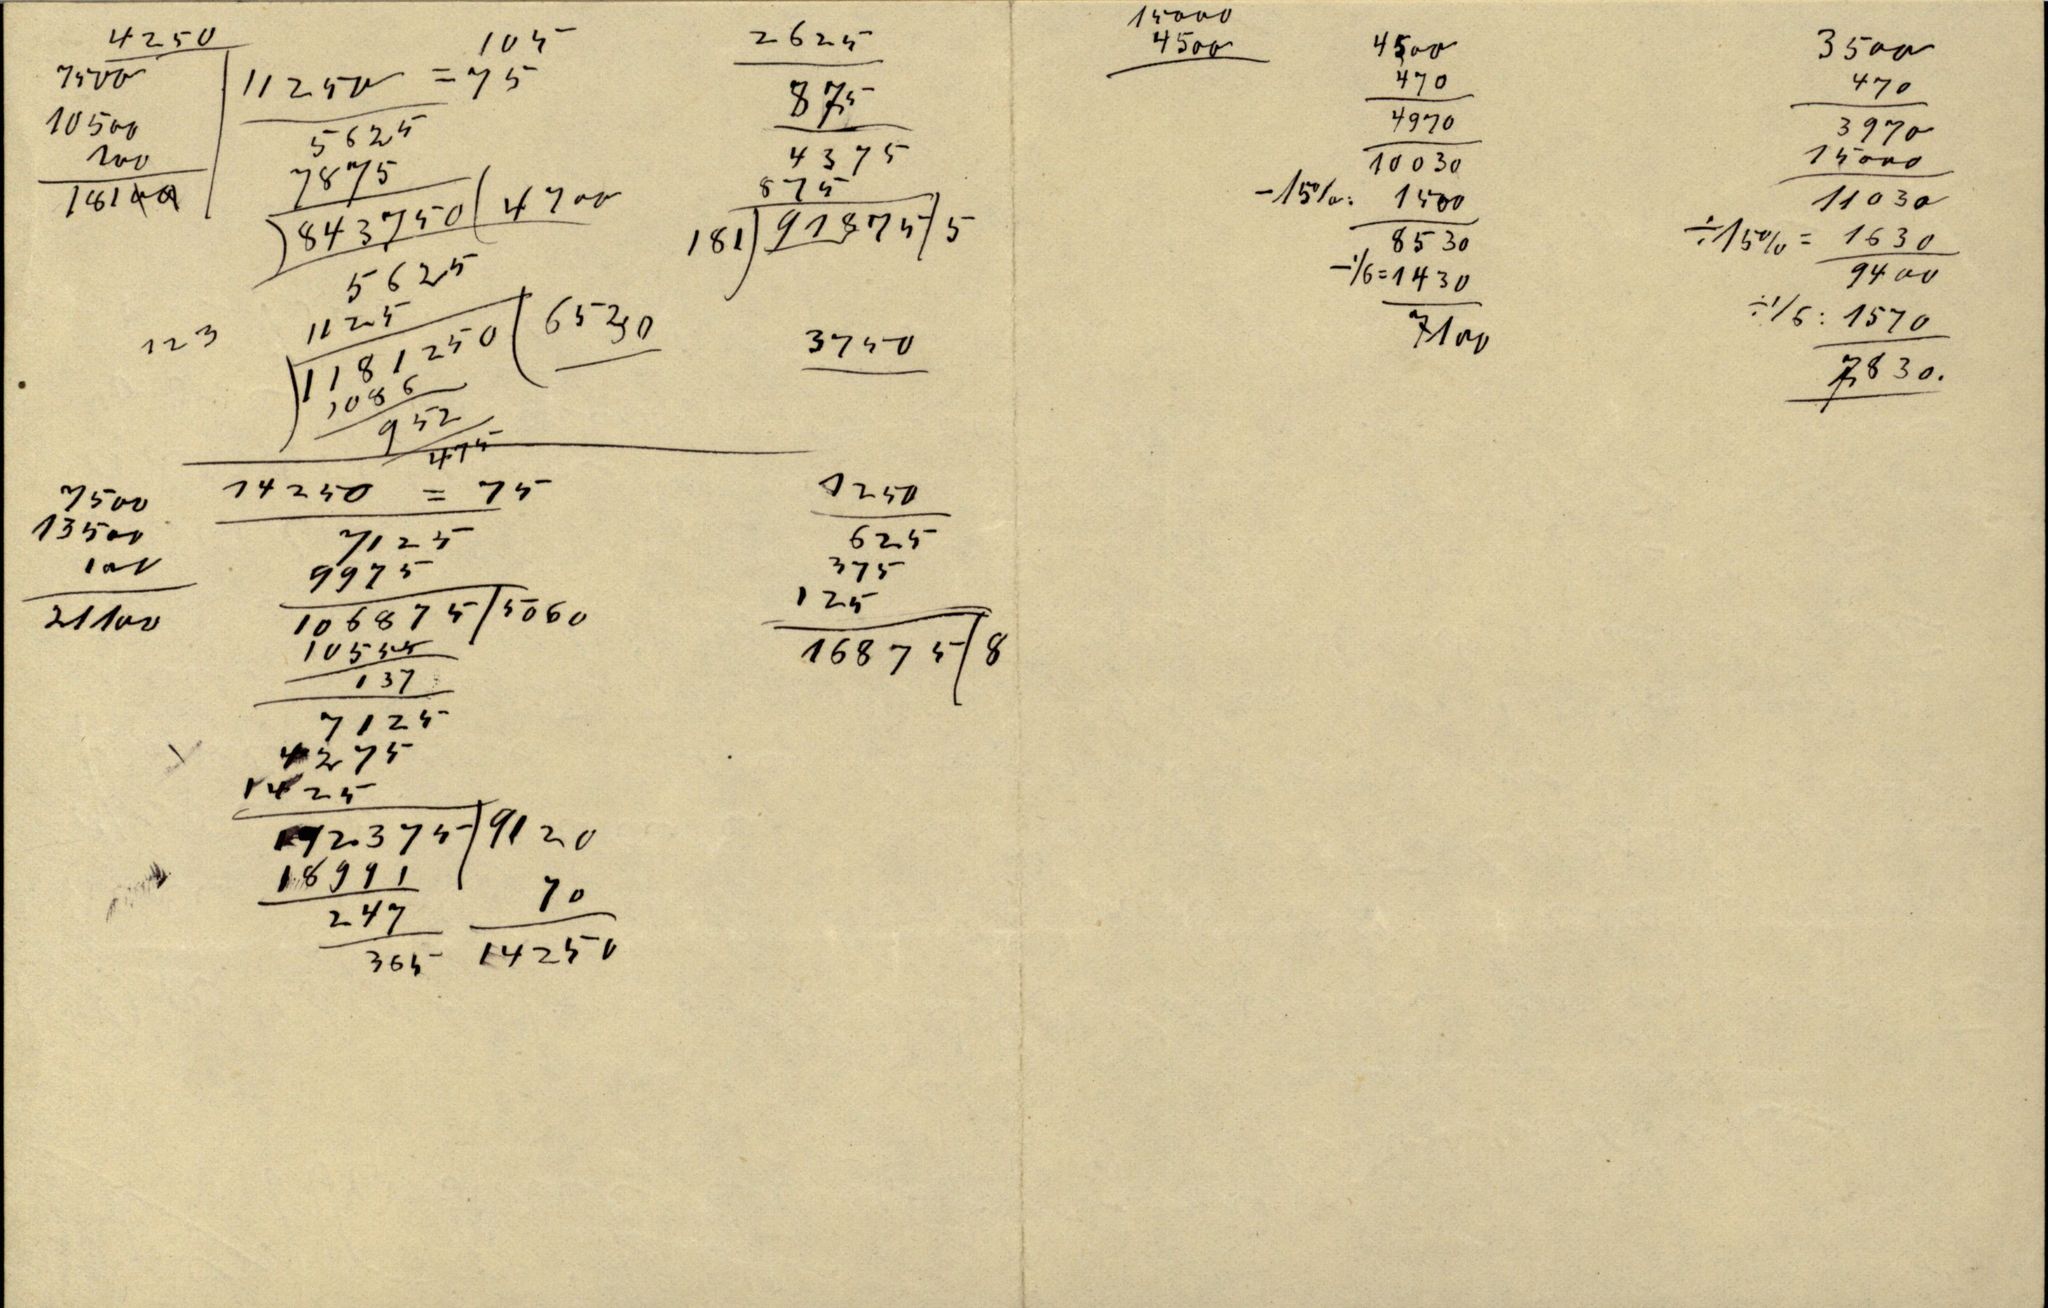 4250
7500
10500
100
18100
105
11250 = 75
5625
7875
843750 ( 4700
5625
1125
1181250 ( 6530
1086
952
475
123
2625
875
4375
875
181 ) 91875 / 5
3750
7500
13500
100
21100
14250 = 75
7125
9975
106875 / 5060
10555
137
7125
4275
1425
192375 / 9120
18991
247
365
70
14250
1250
625
375
125
16875 / 8
15000
4500
4500
470
4970
10030
-15%: 1500
8530
-1/6=1430
7100
3500
470
3970
15000
11030
÷15% = 1630
9400
÷1/6: 1570
7830.